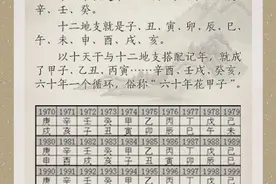 辛、壬、癸。
十二地支就是子、丑、寅、卯、辰、巳、
午、未、申、酉、戌、亥。
以十天干与十二地支搭配记年，就成
了甲子、乙丑、丙寅……辛酉、壬戌、癸亥，
六十年一个循环，俗称“六十年花甲子”。
1970 1971 1972 1973 1974 1975 1976 1977 1978 1979
庚 辛 壬 癸 甲 乙 丙 丁 戊 己
戌 亥 子 丑 寅 卯 辰 巳 午 未
1980 1981 1982 1983 1984 1985 1986 1987 1988 1989
庚 辛 壬 癸 甲 乙 丙 丁 戊 己
申 酉 戌 亥 子 丑 寅 卯 辰 巳
1990 1991 1992 1993 1994 1995 1996 1997 1998 1999
庚 辛 壬 癸 甲 乙 丙 丁 戊 己